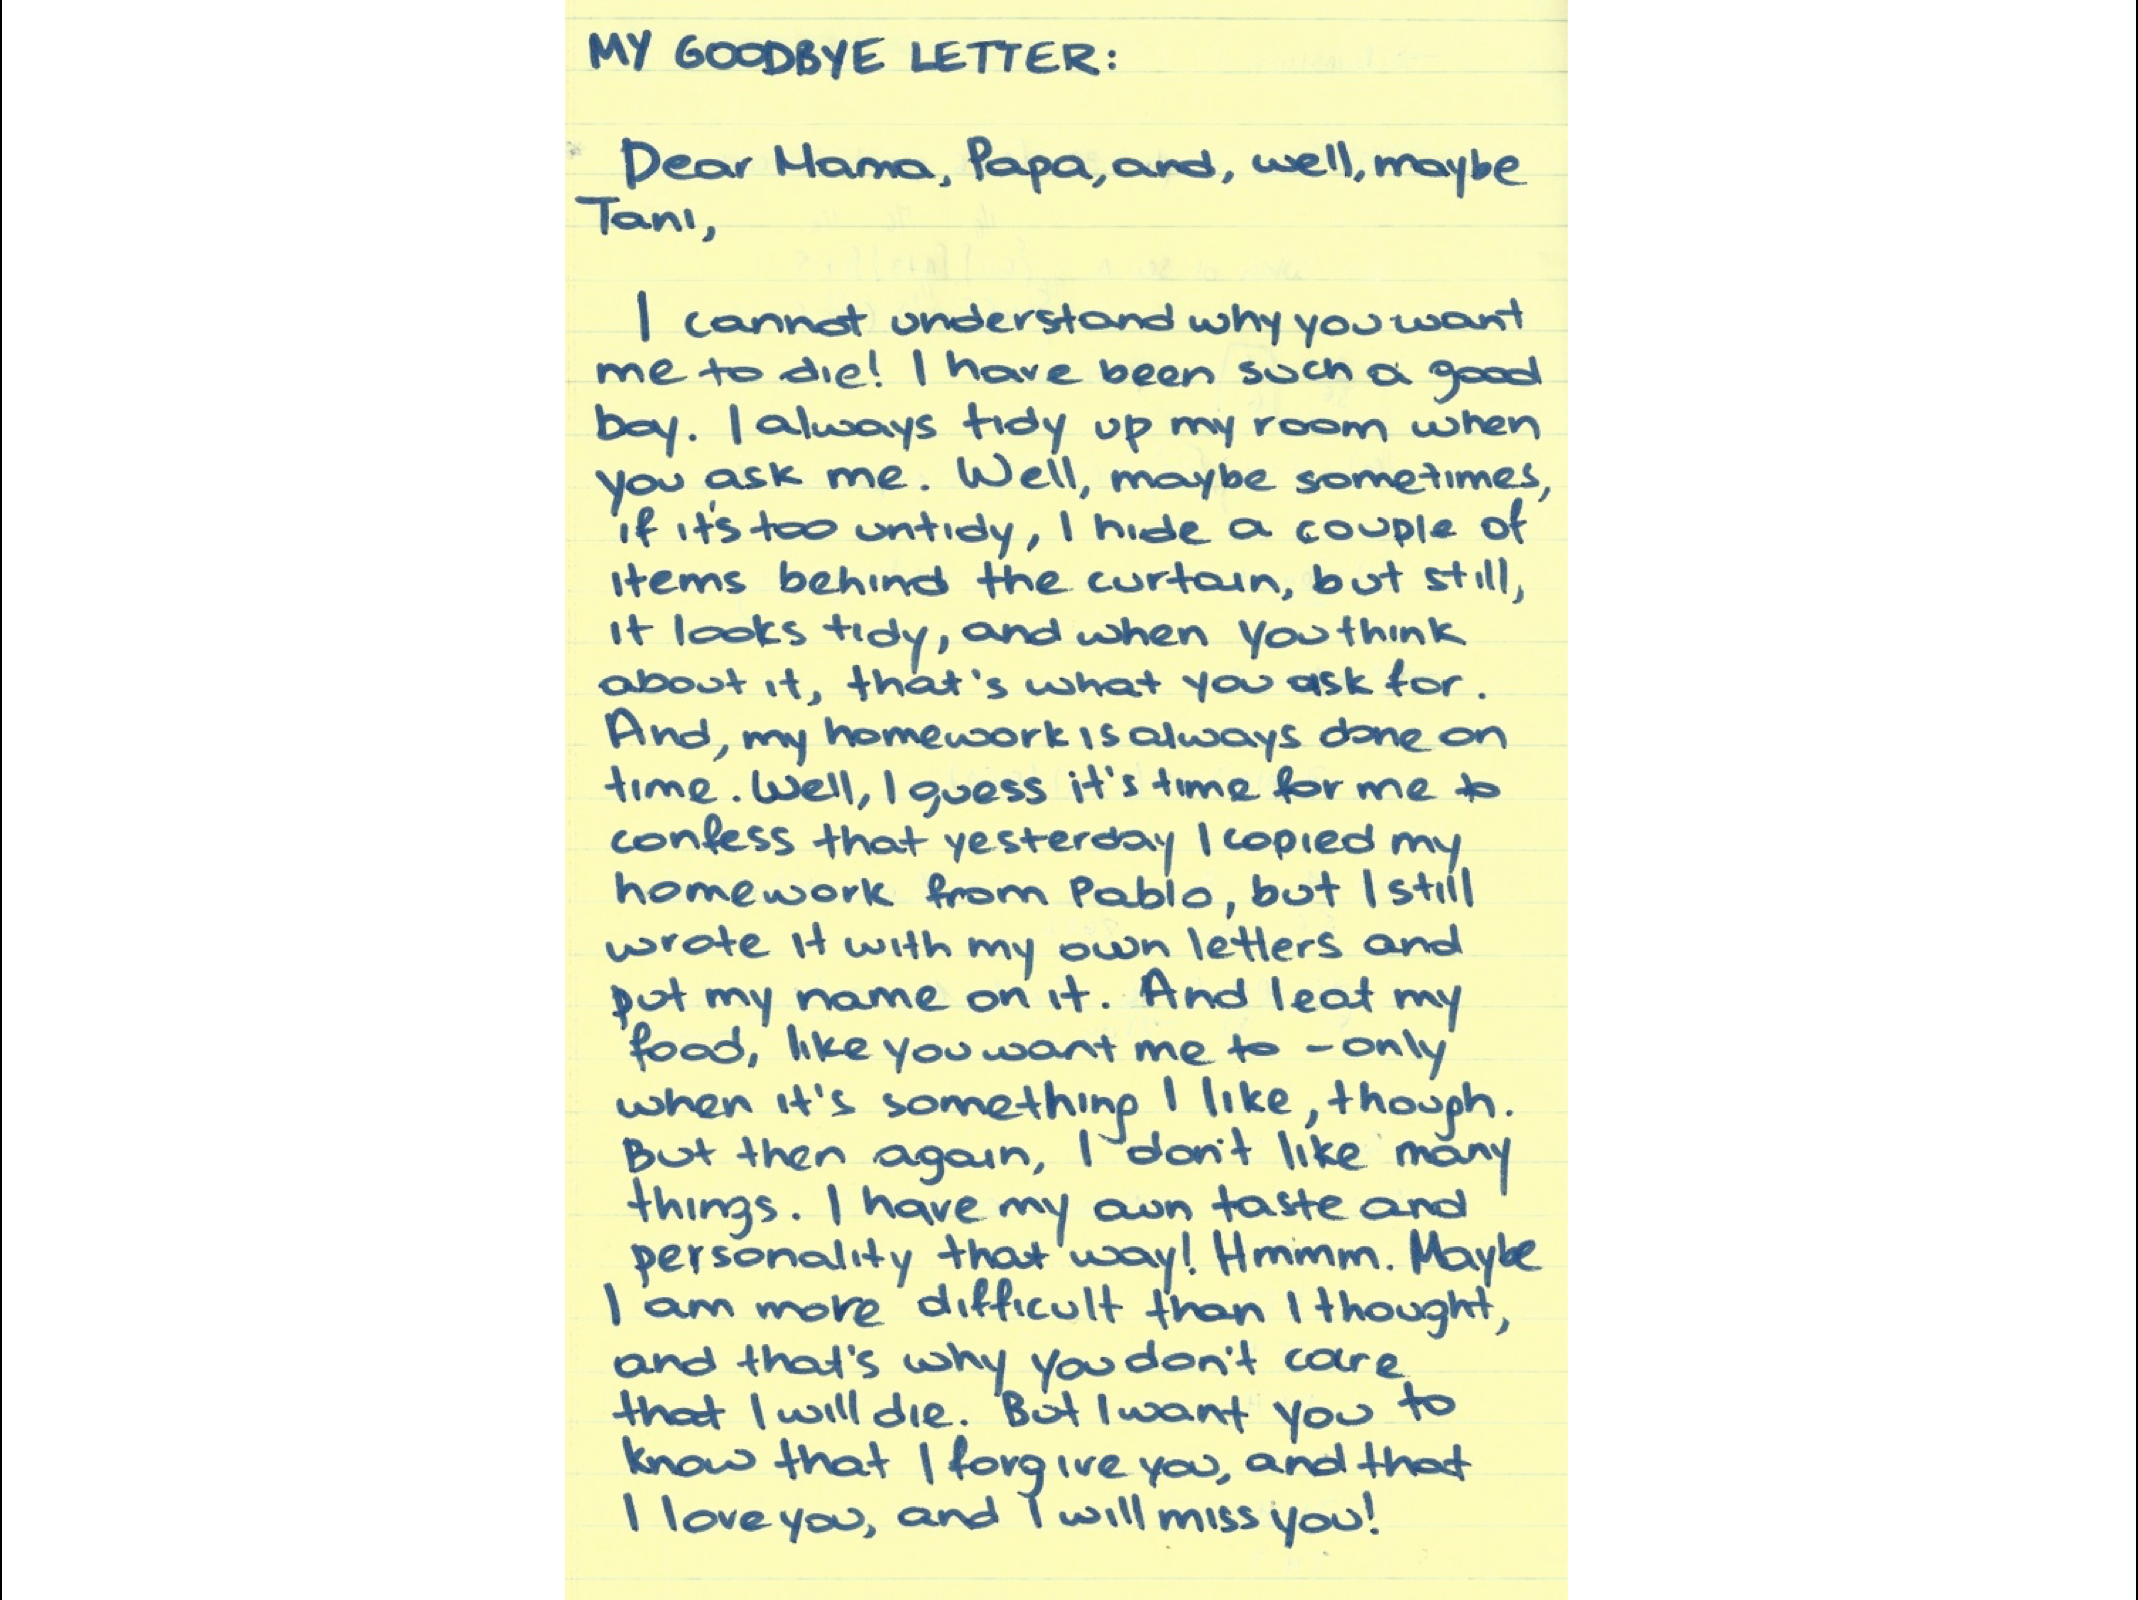 MY GOODBYE LETTER:
Dear Mama, Papa, and, well, maybe
Tani,
I cannot understand why you want
me to die! I have been such a good
boy. I always tidy up my room when
you ask me. Well, maybe sometimes,
if it's too untidy, I hide a couple of
items behind the curtain, but still,
it looks tidy, and when you think
about it, that's what you ask for.
And, my homework is always done on
time. Well, I guess it's time for me to
confess that yesterday I copied my
homework from Pablo, but I still
wrote it with my own letters and
put my name on it. And I eat my
food, like you want me to - only
when it's something I like, though.
But then again, I don't like many
things. I have my own taste and
personality that way! Hmmm. Maybe
I am more difficult than I thought,
and that's why you don't care
that I will die. But I want you to
know that I forgive you, and that
I love you, and I will miss you!